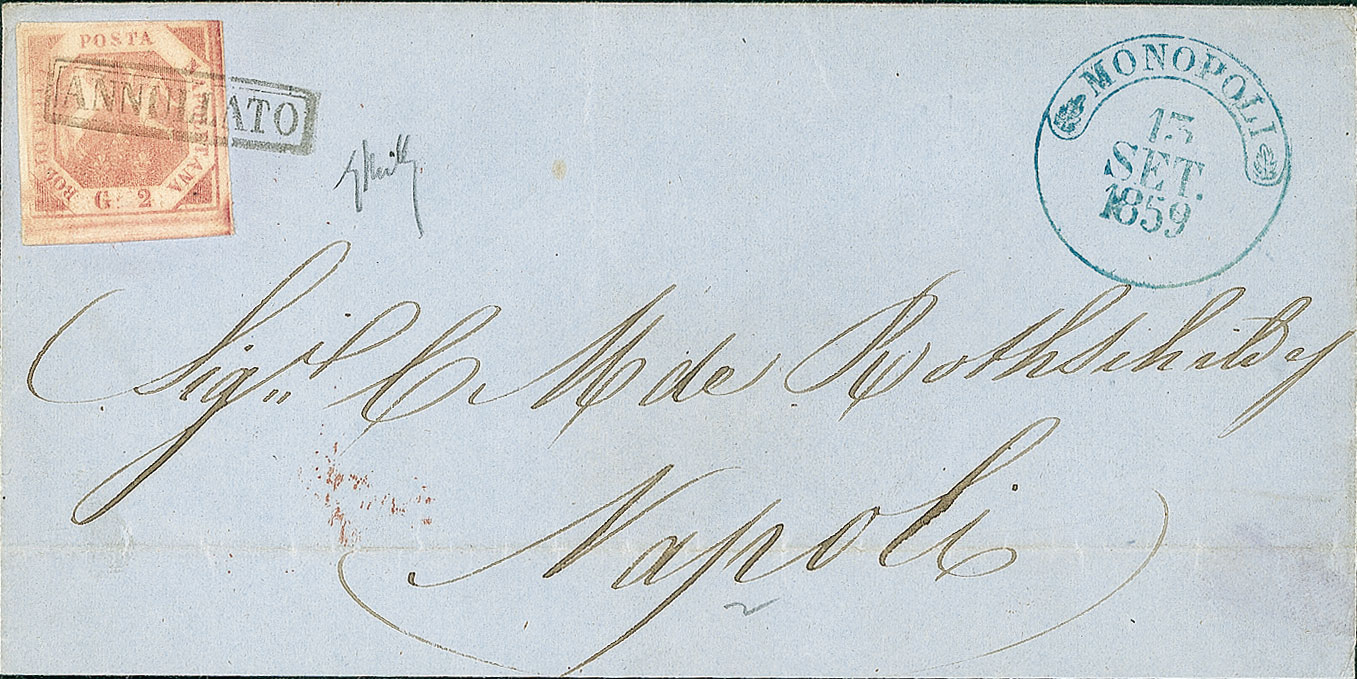 POSTA
NAPOLETANA
BOLLO
G. 2
ANNULLATO
MONOPOLI
15
SET.
1859
Sig.ri C M de Rothschild
Napoli